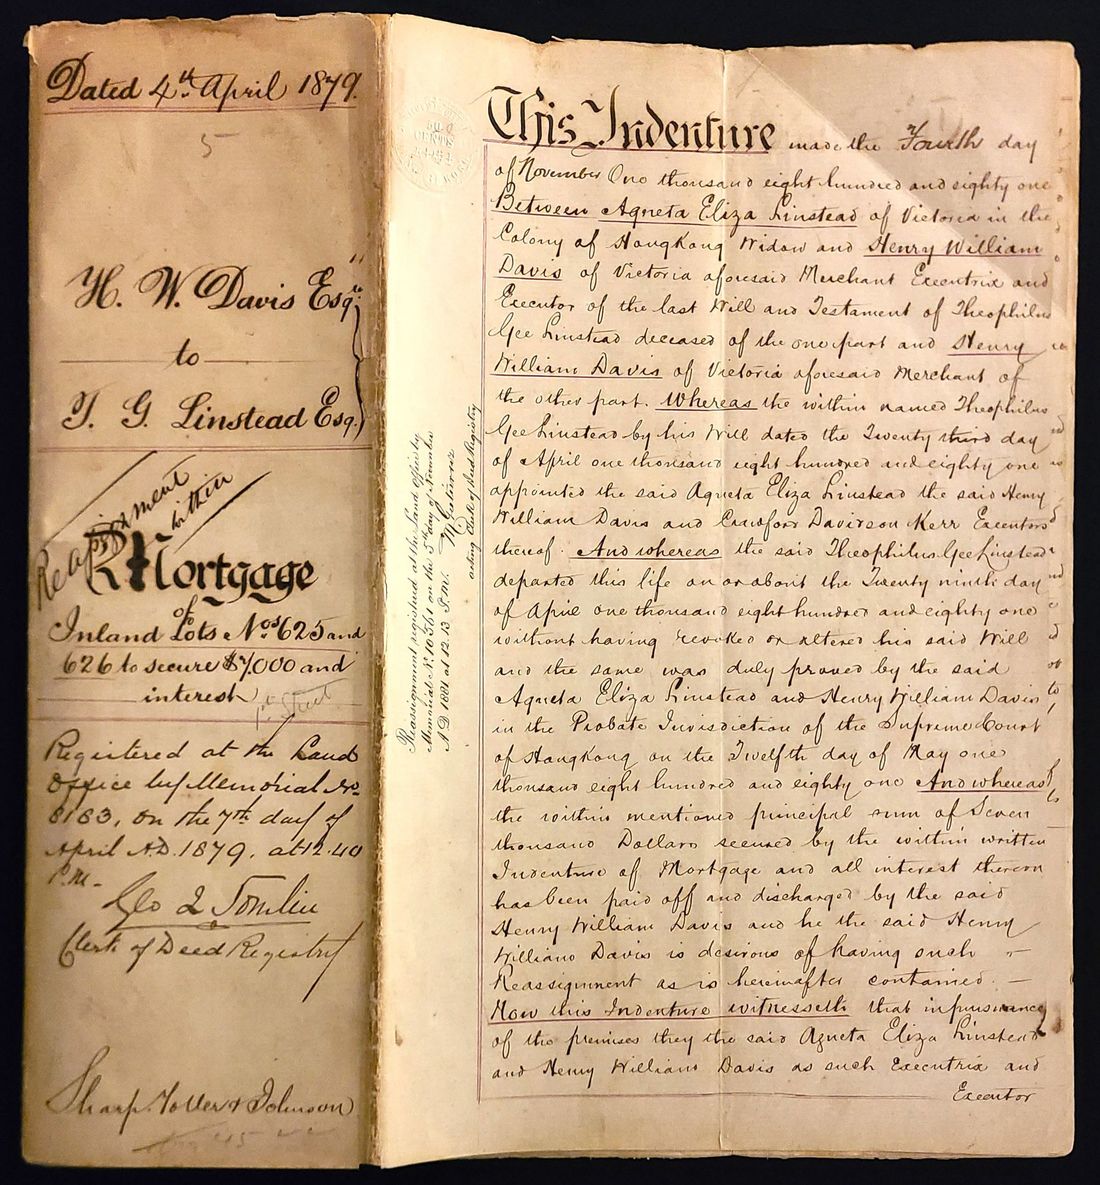 Dated 4th April 1879.
5
H. W. Davis Esqre
to
T. G. Linstead Esq.
Reassignment
within
Mortgage
of
Inland Lots Nos 625 and
626 to secure $7000 and
interest
Registered at the Land
Office by Memorial No.
8183, on the 7th day of
April A.D. 1879, at 12.40
P.M.
Geo L Tomlin
Clerk of Deed Registry
Sharp Toller & Johnson
Reassignment registered at the Land Office by
Memorial No. 10561 on the 5th day of November
A D 1881 at 12.13 P.M.
acting Clerk of Deed Registry
This Indenture made the Fourth day
of November One thousand eight hundred and eighty one
Between Agneta Eliza Linstead of Victoria in the
Colony of Hongkong Widow and Henry William
Davis of Victoria aforesaid Merchant Executrix and
Executor of the last Will and Testament of Theophilus
Gee Linstead deceased of the one part and Henry
William Davis of Victoria aforesaid Merchant of
the other part. Whereas the within named Theophilus
Gee Linstead by his Will dated the Twenty third day
of April one thousand eight hundred and eighty one
appointed the said Agneta Eliza Linstead the said Henry
William Davis and Crawford Davidson Kerr Executors
thereof. And whereas the said Theophilus Gee Linstead
departed this life on or about the Twenty ninth day
of April one thousand eight hundred and eighty one
without having revoked or altered his said Will
and the same was duly proved by the said
Agneta Eliza Linstead and Henry William Davis
in the Probate Jurisdiction of the Supreme Court
of Hongkong on the Twelfth day of May one
thousand eight hundred and eighty one And whereas
the within mentioned principal sum of Seven
thousand Dollars secured by the within written
Indenture of Mortgage and all interest thereon
has been paid off and discharged by the said
Henry William Davis and he the said Henry
William Davis is desirous of having such
Reassignment as is hereinafter contained.
Now this Indenture witnesseth that in pursuance
of the premises they the said Agneta Eliza Linstead
and Henry William Davis as such Executrix and
Executor